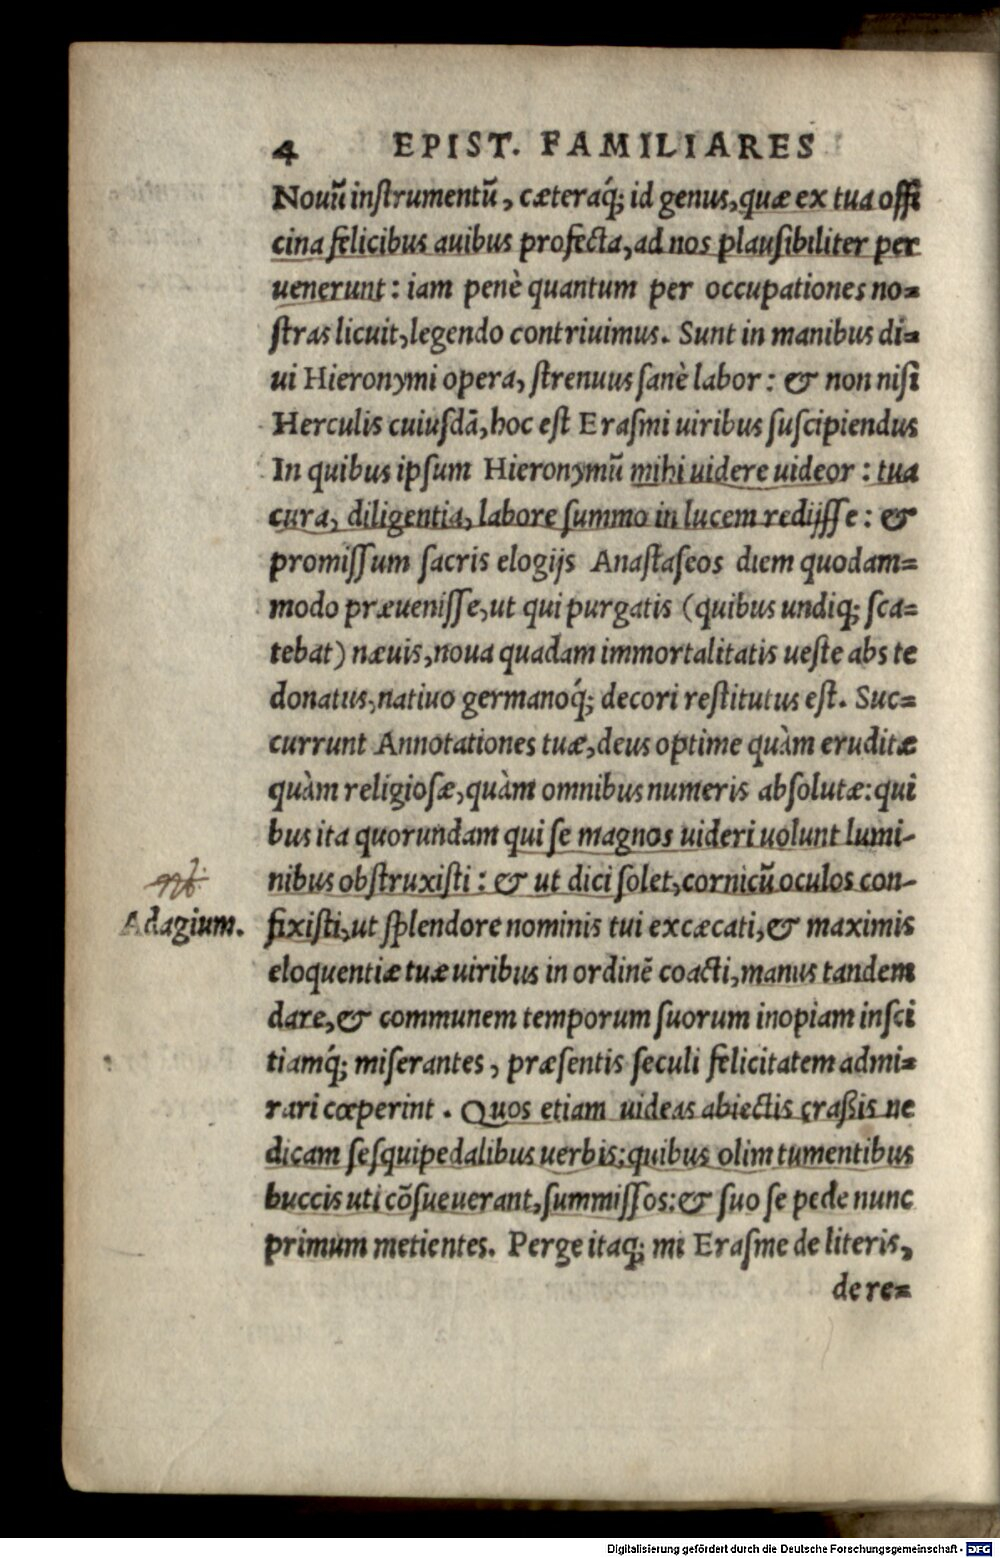 4 EPIST. FAMILIARES
Nouũ instrumentũ, cæteraq́; id genus, quæ ex tua offi
cina felicibus auibus profecta, ad nos plausibiliter per
uenerunt: iam penè quantum per occupationes no=
stras licuit, legendo contriuimus. Sunt in manibus di=
ui Hieronymi opera, strenuus sanè labor: & non nisi
Herculis cuiusdã, hoc est Erasmi uiribus suscipiendus
In quibus ipsum Hieronymũ mihi uidere uideor: tua
cura, diligentia, labore summo in lucem redijsse: &
promissum sacris elogijs Anastaseos diem quodam=
modo præuenisse, ut qui purgatis (quibus undiq; sca=
tebat) næuis, noua quadam immortalitatis ueste abs te
donatus, natiuo germanoq́; decori restitutus est. Suc=
currunt Annotationes tuæ, deus optime quàm eruditæ
quàm religiosæ, quàm omnibus numeris absolutæ: qui
bus ita quorundam qui se magnos uideri uolunt lumi-
nibus obstruxisti: & ut dici solet, cornicũ oculos con-
Adagium. fixisti, ut splendore nominis tui excæcati, & maximis
eloquentiæ tuæ uiribus in ordinẽ coacti, manus tandem
dare, & communem temporum suorum inopiam insci
tiamq́; miserantes, præsentis seculi felicitatem admi=
rari cœperint. Quos etiam uideas abiectis craßis ne
dicam sesquipedalibus uerbis: quibus olim tumentibus
buccis uti cõsueuerant, summissos: & suo se pede nunc
primum metientes. Perge itaq; mi Erasme de literis,
de re=
Digitalisierung gefördert durch die Deutsche Forschungsgemeinschaft - DFG